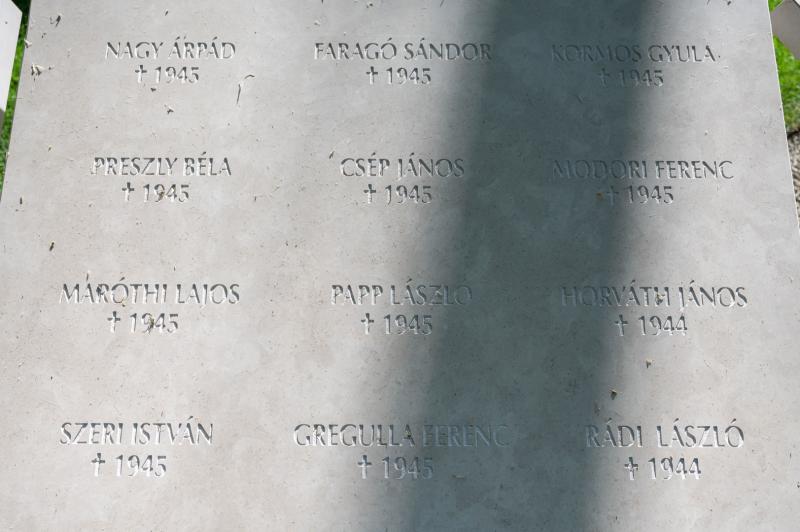 NAGY ÁRPÁD
✝ 1945
FARAGÓ SÁNDOR
✝ 1945
KORMOS GYULA
✝ 1945
PRESZLY BÉLA
✝ 1945
CSÉP JÁNOS
✝ 1945
MODORI FERENC
✝ 1945
MARÓTHI LAJOS
✝ 1945
PAPP LÁSZLÓ
✝ 1945
HORVÁTH JÁNOS
✝ 1944
SZERI ISTVÁN
✝ 1945
GREGULLA FERENC
✝ 1945
RÁDI LÁSZLÓ
✝ 1944